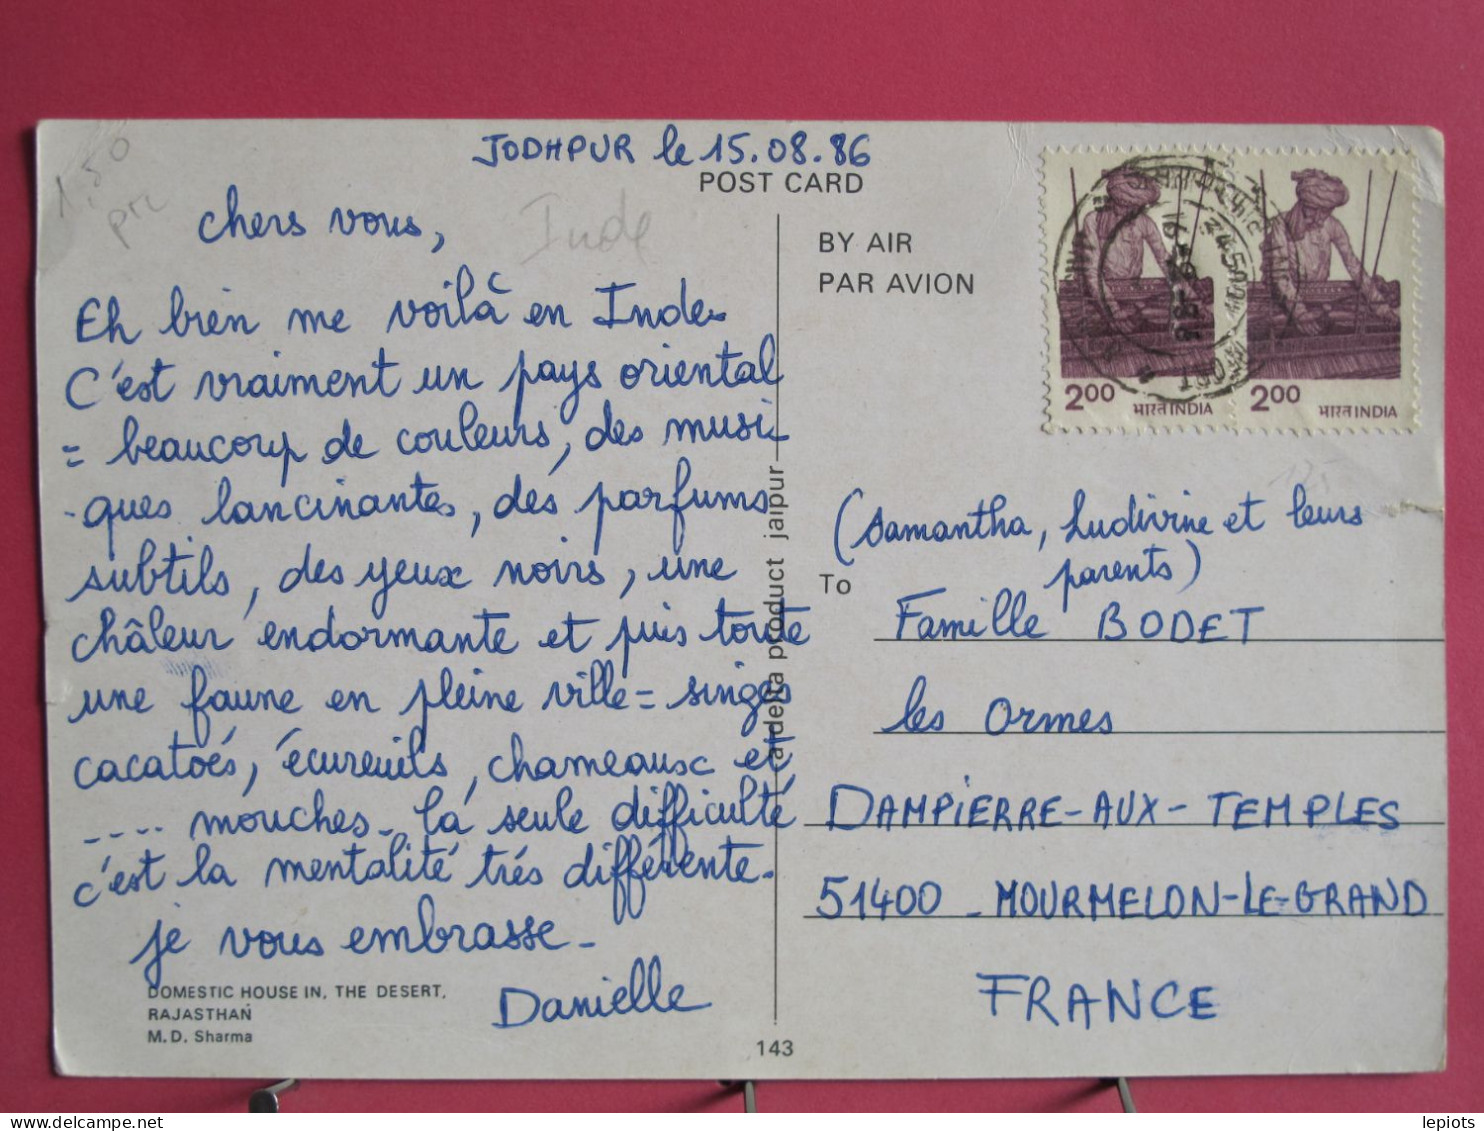 1,50
JODHPUR le 15.08.86
POST CARD
Inde
chers vous,
Eh bien me voilà en Inde-
C'est vraiment un pays oriental
= beaucoup de couleurs, des musi-
-ques lancinantes, des parfums
subtils, des yeux noirs, une
châleur endormante et puis toute
une faune en pleine ville = singes
cacatoés, écureuils, chameaux et
.... mouches - la seule difficulté
c'est la mentalité trés différente.
je vous embrasse -
Danielle
DOMESTIC HOUSE IN, THE DESERT,
RAJASTHAN
M.D. Sharma
143
a delta product jaipur
BY AIR
PAR AVION
2.00 भारत INDIA
2.00 भारत INDIA
(Samantha, Ludivine et leurs
parents)
To
Famille BODET
les Ormes
DAMPIERRE-AUX-TEMPLES
51400 - MOURMELON-LE-GRAND
FRANCE
lepiots